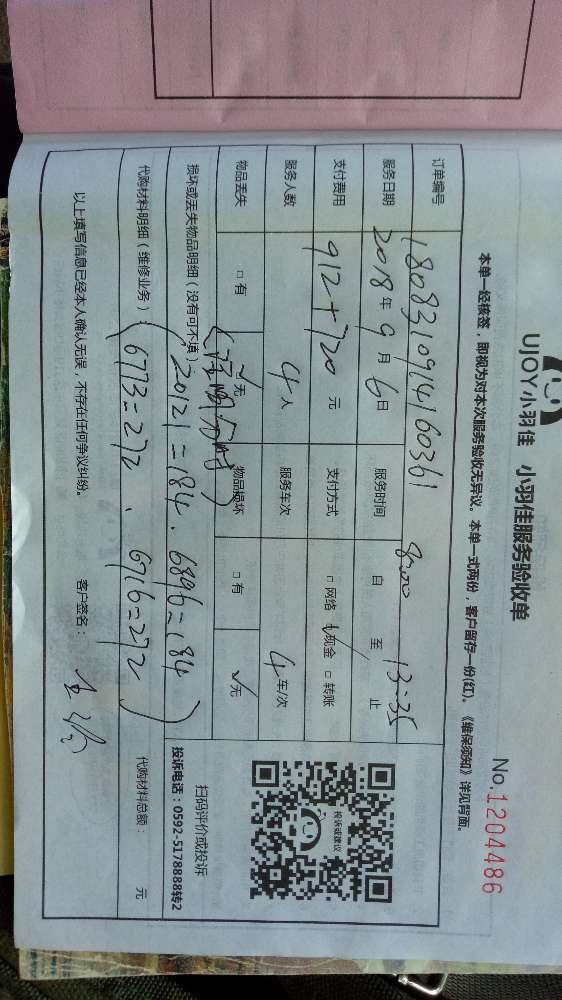 UJOY小羽佳 小羽佳服务验收单
No.1204486
本单一经核签，即视为对本次服务验收无异议。本单一式两份，客户留存一份(红)。《维保须知》详见背面。
订单编号 1808310914160361
服务日期 2018年9月6日 服务时间 自 8:00 至 13:35 止
支付费用 912+720 元 支付方式 □网络 √现金 □转账
服务人数 4人 服务车次 4车/次
物品丢失 □有 √无 物品损坏 □有 √无
损坏或丢失物品明细（没有可不填
20121=184、6896=184
代购材料明细（维修业务）：
6773=272、6716=272
代购材料总额： 元
投诉或建议
扫码评价或投诉
投诉电话：0592-5178888转2
以上填写信息已经本人确认无误，不存在任何争议纠纷。 客户签名：